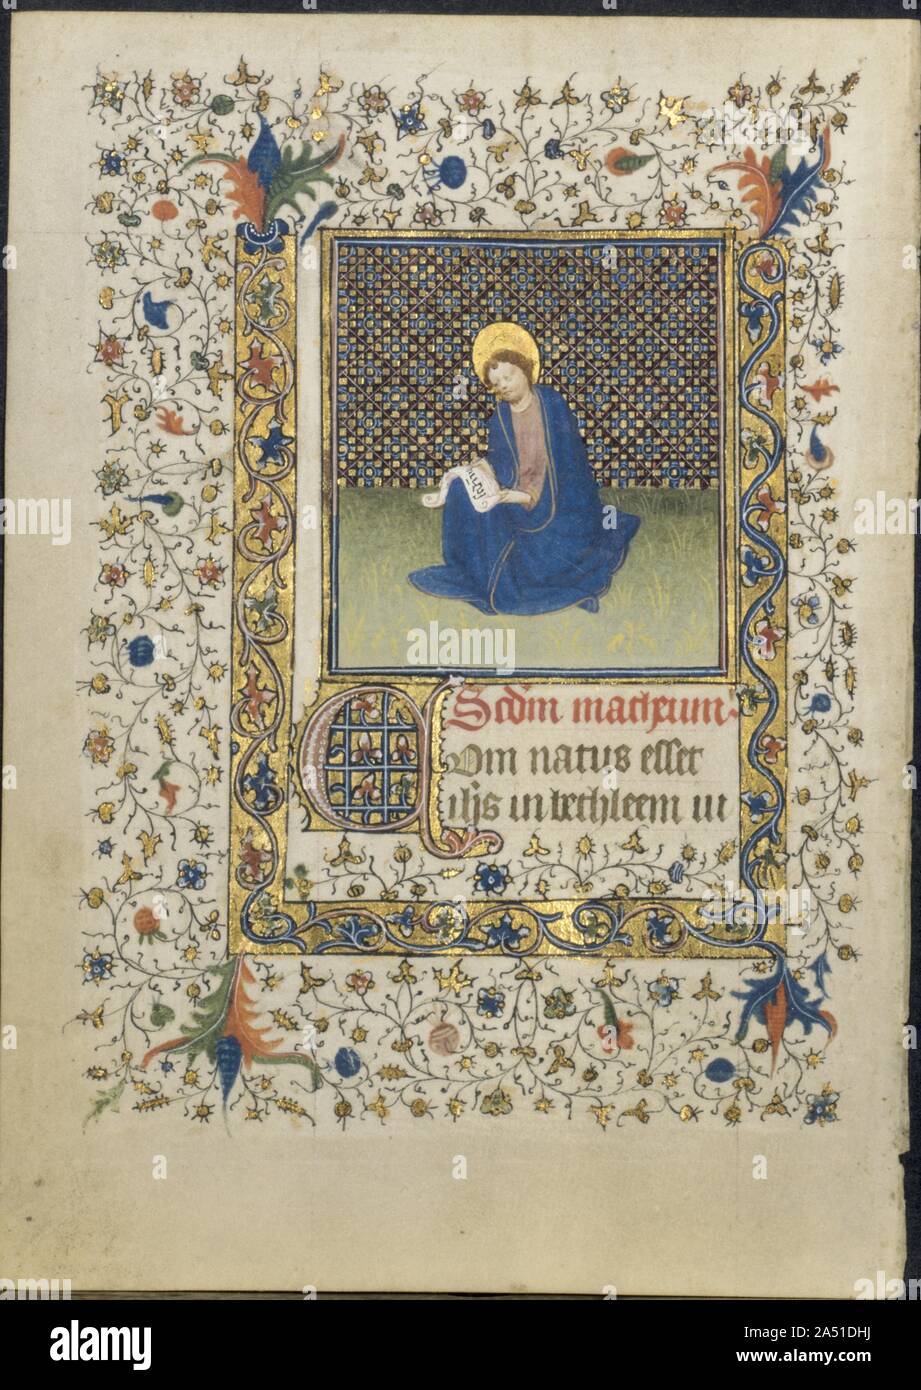 Scdm matheum.
Com natus esset
ihs in bethleem iu
alamy
Image ID: 2A51DHJ
www.alamy.com